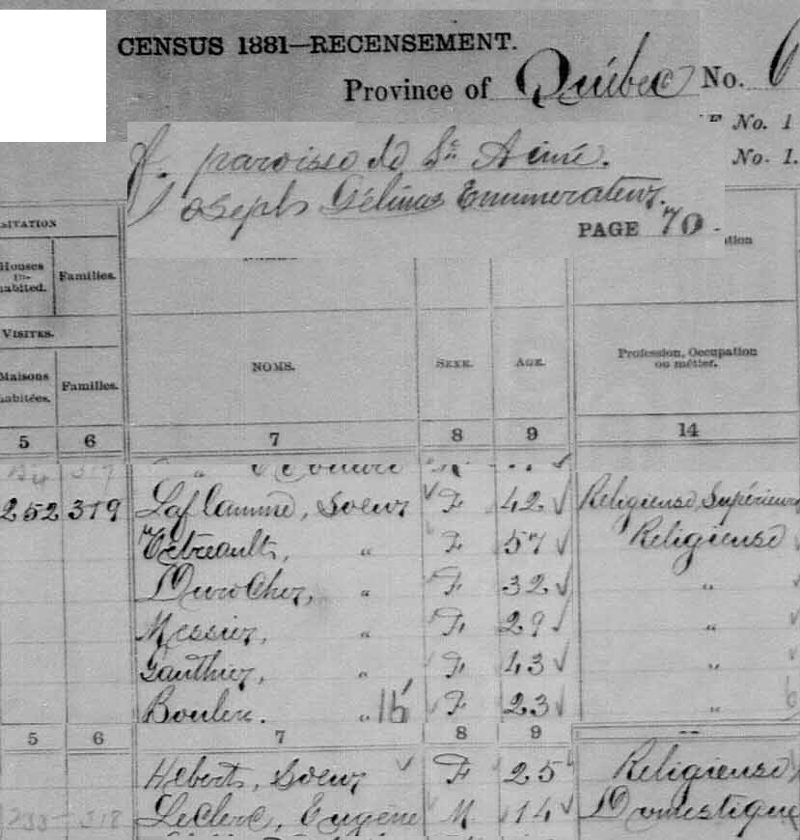 CENSUS 1881—RECENSEMENT.
Province of Québec No.
No. 1
f. paroisse de St Aimé. No. 1.
Joseph Gélinas Enumerateur.
PAGE 70
Houses in-habited. Families.
VISITES.
Maisons habitées. Families. NOMS. SEXE. AGE. Profession, Occupation ou métier.
5 6 7 8 9 14
252 319 Laflamme, Soeur F 42 Religieuse Supérieure
Tétreault, " F 57 Religieuse
DuroCher, " F 32 "
Messier, " F 29 "
Gauthier, " F 43 "
Bouler. " 16 F 23 "
5 6 7 8 9
Hebert, Soeur F 25 Religieuse
LeClerc, Eugène M 14 Domestique